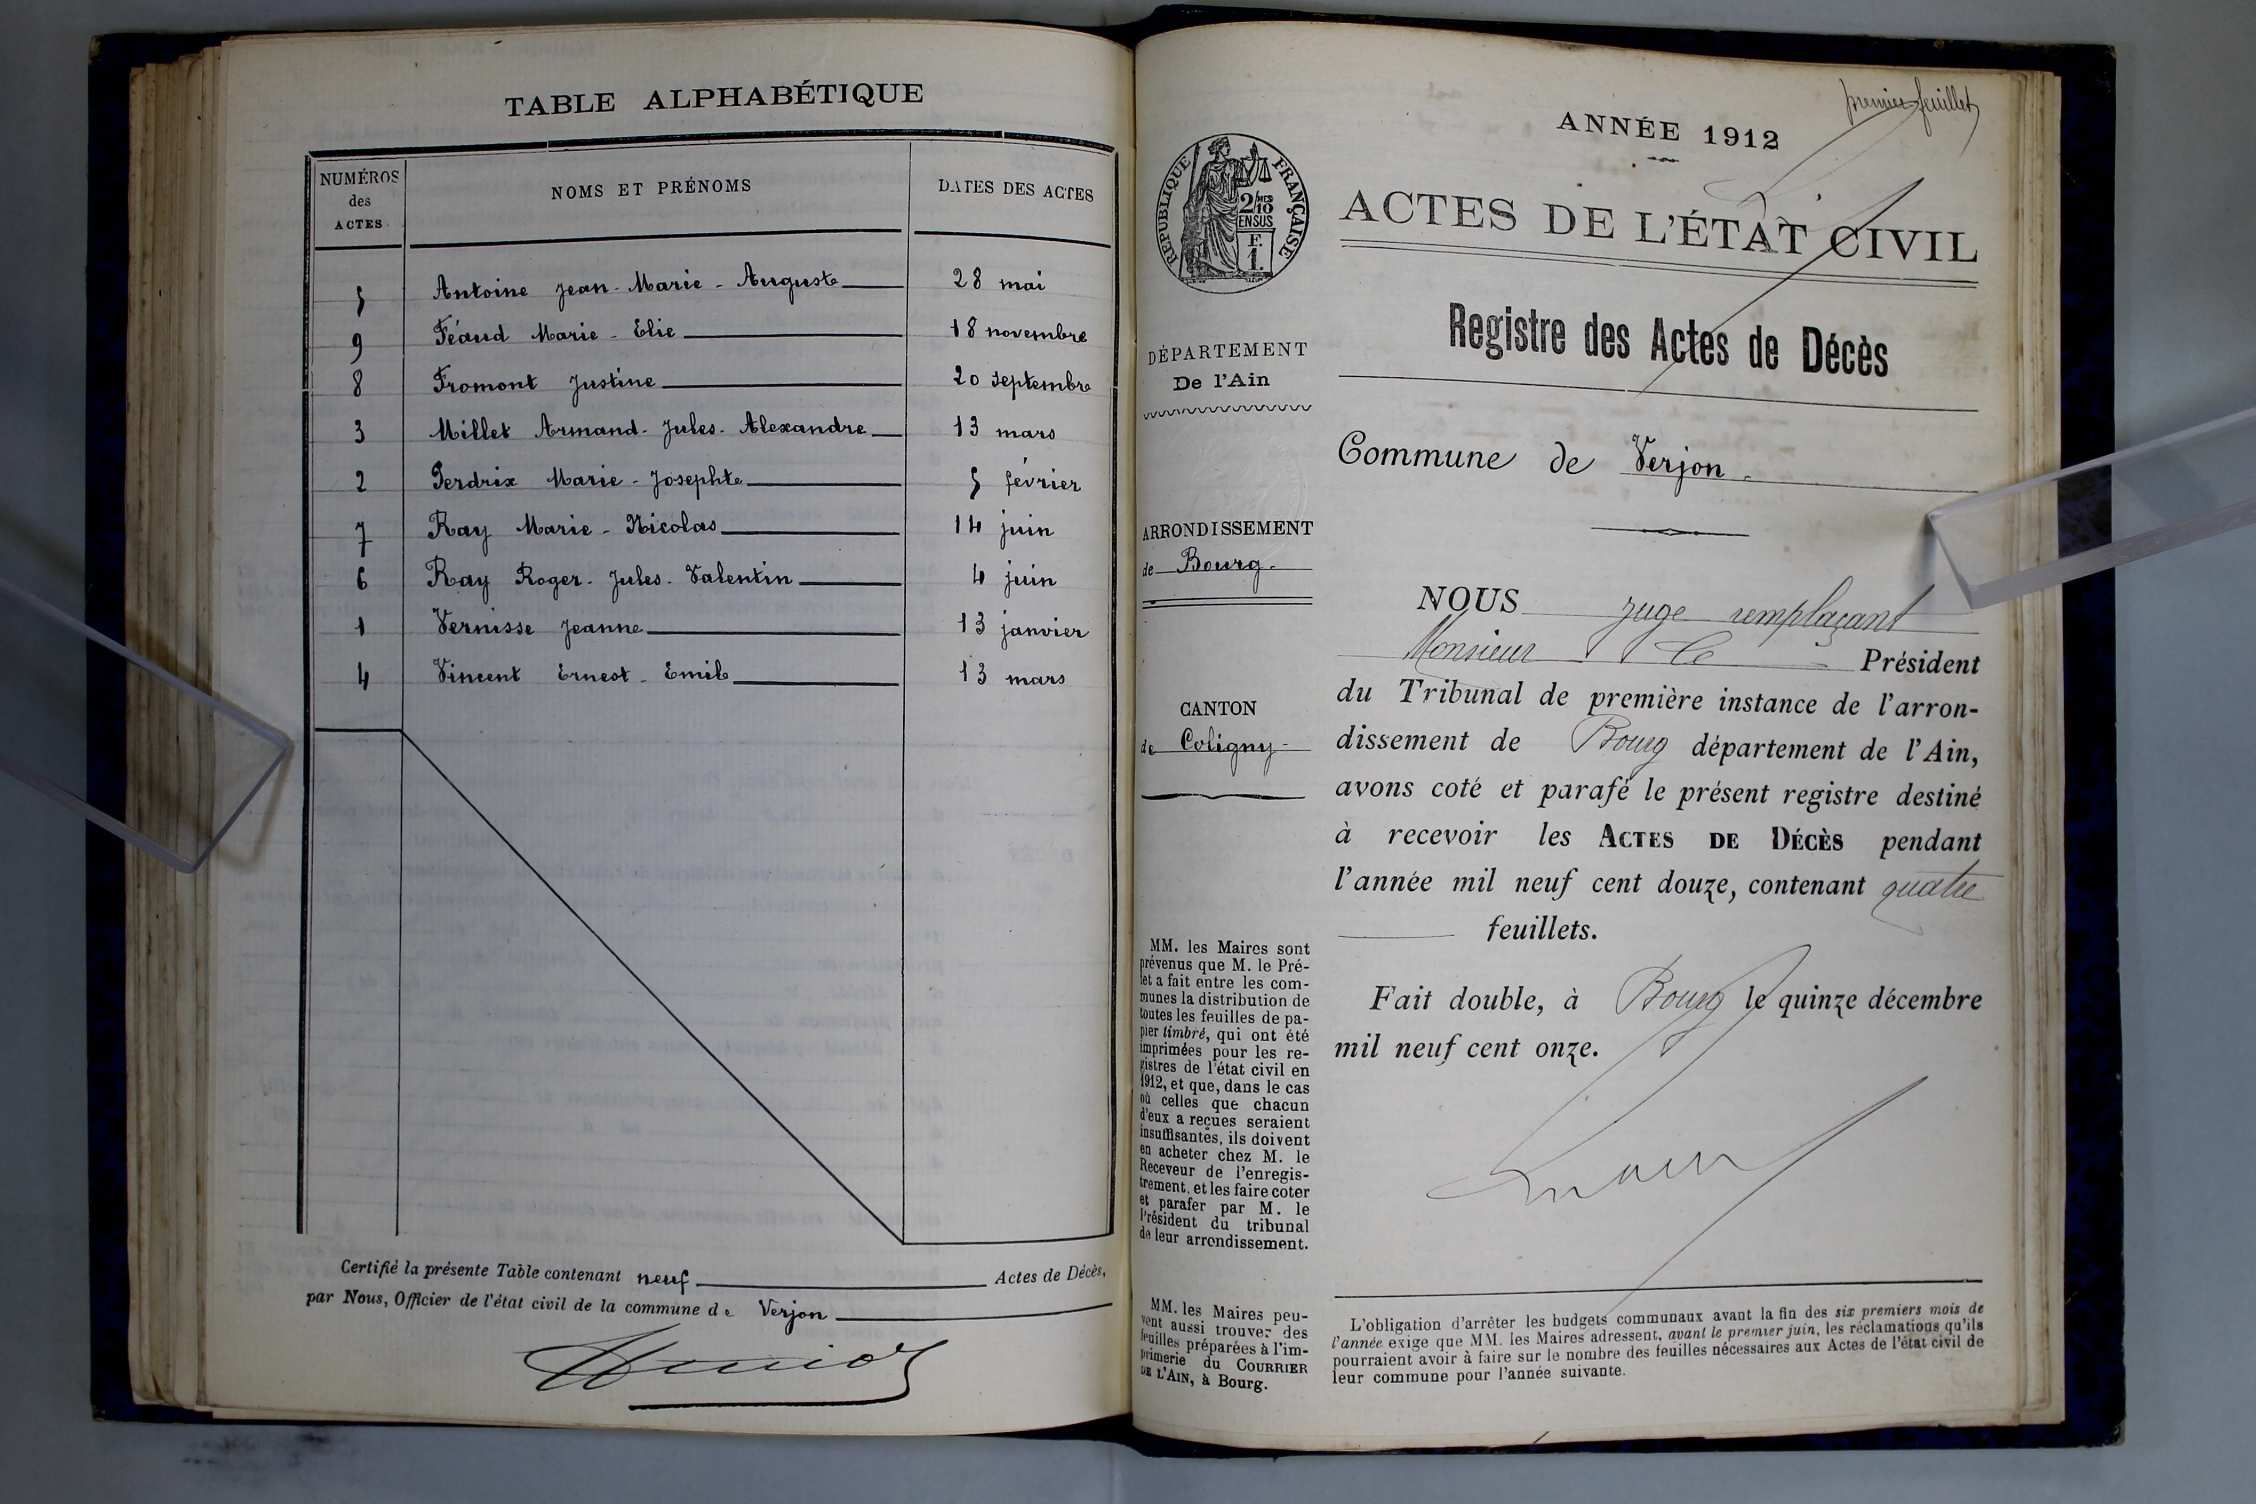 TABLE ALPHABÉTIQUE
NUMÉROS des ACTES NOMS ET PRÉNOMS DATES DES ACTES
5 Antoine Jean-Marie-Auguste 28 mai
9 Féaud Marie-Elie 18 novembre
8 Fromont Justine 20 septembre
3 Millet Armand-Jules-Alexandre 13 mars
2 Perdrix Marie-Josephte 5 février
7 Ray Marie-Nicolas 14 juin
6 Ray Roger-Jules-Valentin 4 juin
1 Vernisse Jeanne 13 janvier
4 Vincent Ernest-Emile 13 mars
Certifié la présente Table contenant neuf Actes de Décès,
par Nous, Officier de l'état civil de la commune de Verjon
premier feuillet
ANNÉE 1912
ACTES DE L'ÉTAT CIVIL
Registre des Actes de Décès
RÉPUBLIQUE FRANÇAISE
2/10 MES
EN SUS
F.
1.
DÉPARTEMENT
De l'Ain
ARRONDISSEMENT
de Bourg.
CANTON
de Coligny
MM. les Maires sont
prévenus que M. le Pré-
fet a fait entre les com-
munes la distribution de
toutes les feuilles de pa-
pier timbré, qui ont été
imprimées pour les re-
gistres de l'état civil en
1912, et que, dans le cas
où celles que chacun
d'eux a reçues seraient
insuffisantes, ils doivent
en acheter chez M. le
Receveur de l'enregis-
trement, et les faire coter
et parafer par M. le
Président du tribunal
de leur arrondissement.
MM. les Maires peu-
vent aussi trouver des
feuilles préparées à l'im-
primerie du COURRIER
DE L'AIN, à Bourg.
Commune de Verjon.
NOUS juge remplaçant
Monsieur le Président
du Tribunal de première instance de l'arron-
dissement de Bourg département de l'Ain,
avons coté et parafé le présent registre destiné
à recevoir les ACTES DE DÉCÈS pendant
l'année mil neuf cent douze, contenant quatre
feuillets.
Fait double, à Bourg le quinze décembre
mil neuf cent onze.
L'obligation d'arrêter les budgets communaux avant la fin des six premiers mois de
l'année exige que MM. les Maires adressent, avant le premier juin, les réclamations qu'ils
pourraient avoir à faire sur le nombre des feuilles nécessaires aux Actes de l'état civil de
leur commune pour l'année suivante.